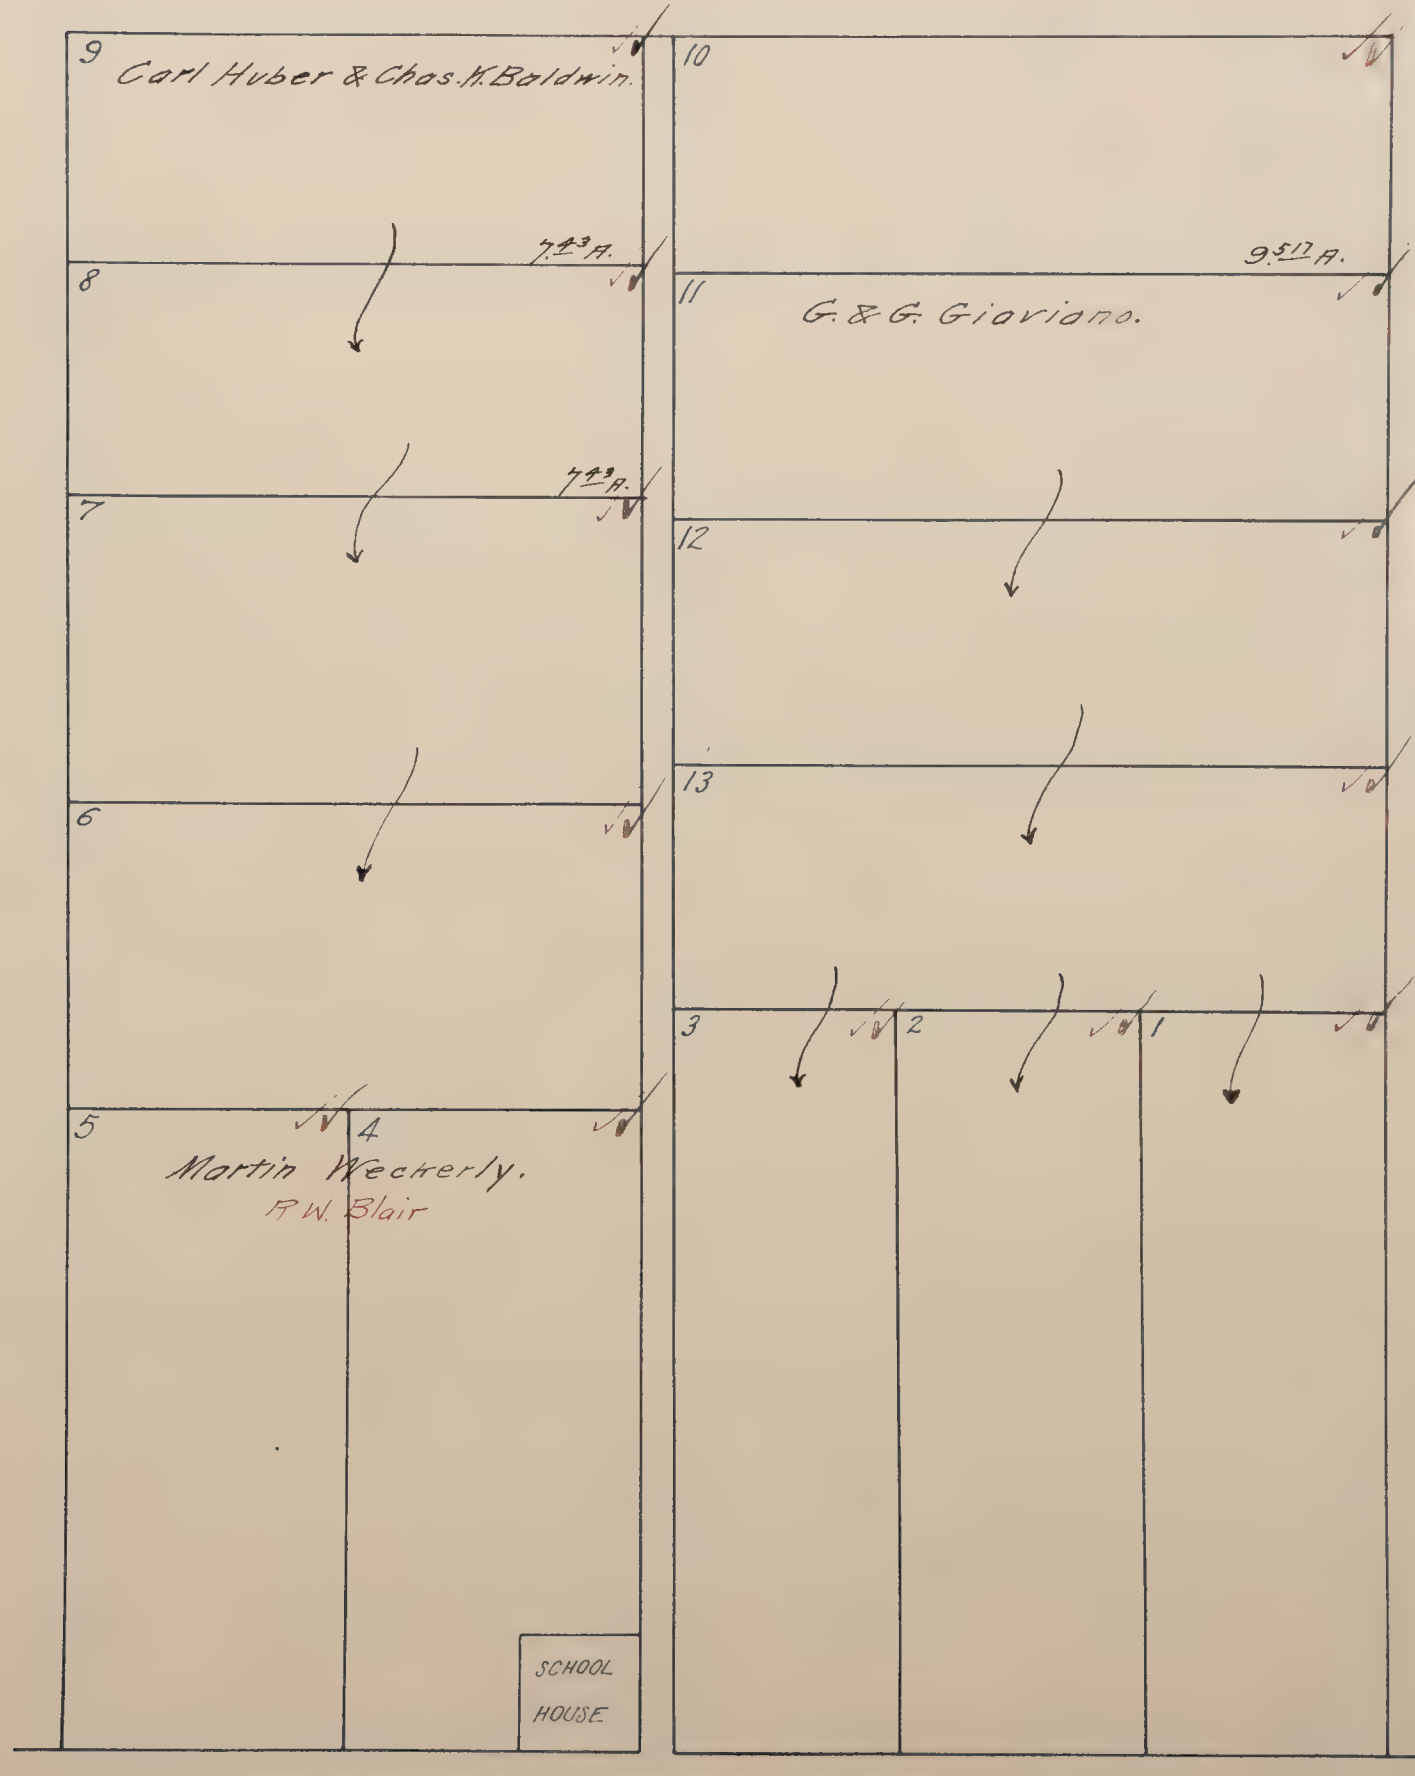 9
Carl Huber & Chas. K. Baldwin.
7.43 A.
8
7.43 A.
7
6
5
4
Martin Weckerly.
R W. Blair
SCHOOL
HOUSE
10
9.517 A.
11
G. & G. Giaviano.
12
13
3
2
1